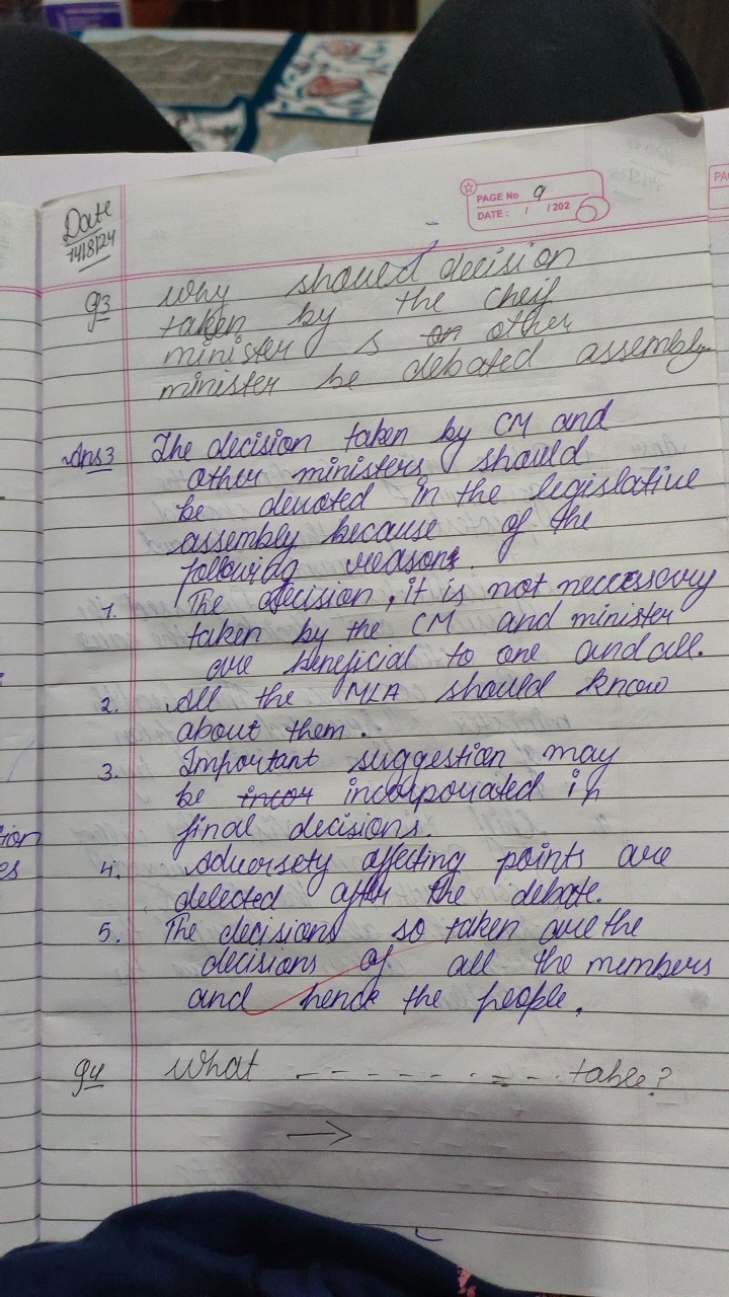 Date
14/8/24
PAGE No 9
DATE: / /202
PA
Q3 Why should decision
taken by the cheif
minister & on other
minister be debated assembly
Ans3 The decision taken by CM and
other ministers should
be devoted in the legislative
assembly because of the
following reasons.
1. The decision, it is not neccessary
taken by the CM and minister
are beneficial to one and all.
2. All the MLA should know
about them.
3. Important suggestion may
be incor incorporated in
final decisions.
4. Adversety affecting points are
delected after the debate.
5. The decisions so taken are the
decisions of all the members
and hence the people.
Q4 What - - - - - - - - - table?
→
tion
es